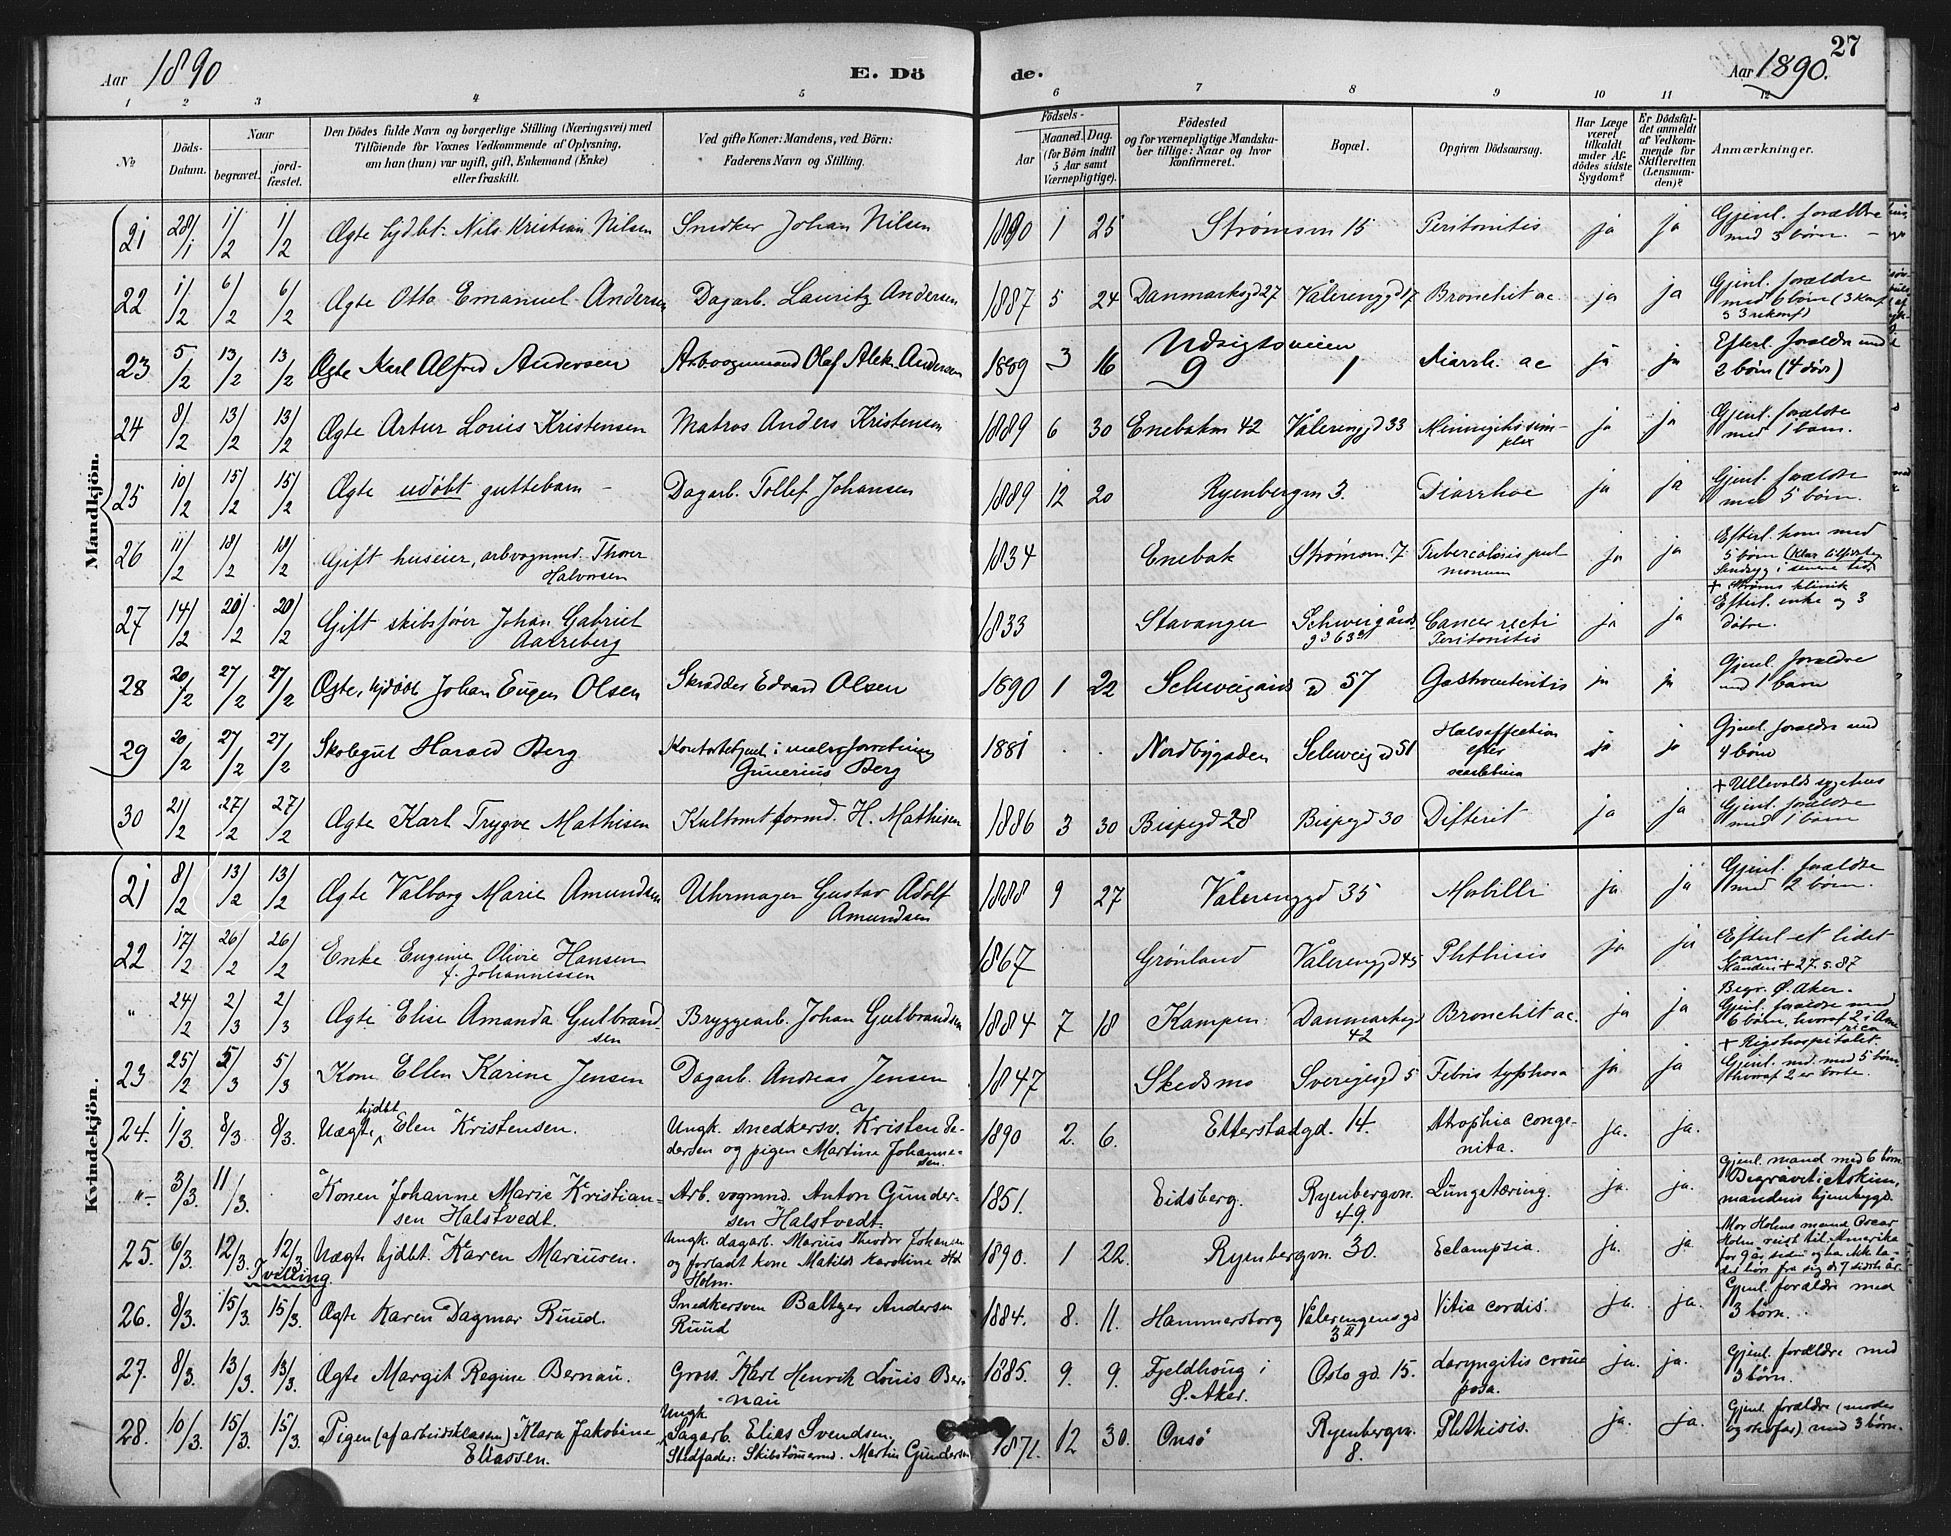 27
Aar 1890
E. Dö
de.
Aar 1890.
1 2 3 4 5 6 7 8 9 10 11 12
No
Döds-Datum.
Naar
begravet.
jord-fæstet.
Den Dödes fulde Navn og borgerlige Stilling (Næringsvei) med
Tilföiende for Voxnes Vedkommende af Oplysning,
om han (hun) var ugift, gift, Enkemand (Enke)
eller fraskilt.
Ved gifte Koner: Mandens, ved Börn:
Faderens Navn og Stilling.
Födsels-
Aar
Maaned. Dag.
(for Börn indtil
5 Aar samt
Værnepligtige).
Födested
og for værnepligtige Mandska-
ber tillige: Naar og hvor
konfirmeret.
Bopæl.
Opgiven Dödsaarsag.
Har Læge
været
tilkaldt
under Af-
dödes sidste
Sygdom?
Er Dödsfal-
det anmeldt
af Vedkom-
mende for
Skifteretten
(Lensman-
den)?
Anmærkninger.
Mandkjön.
21 28/1 1/2 1/2 Ægte hjdbt. Nils Kristian Nilsen Snedker Johan Nilsen 1890 1 25 Strømsvn 15 Peritonitis ja ja Gjenl. forældre
med 5 børn. –
22 1/2 6/2 6/2 Ægte Otto Emanuel Andersen Dagarb. Lauritz Andersen 1887 5 24 Danmarksgd 27 Vålerenggd 17 Bronchit ac ja ja Gjenl. forældre
med 6 børn (3 konf
23 5/2 13/2 13/2 Ægte Karl Alfred Andersen Arb.vognmand Olaf Alek. Andersen 1889 3 16 Udsigtsveien
9 1 Diarrh. ac ja ja Efterl. forældre med
2 børn (4 døde)
24 8/2 13/2 13/2 Ægte Artur Louis Kristensen Matros Anders Kristensen 1889 6 30 Enebakvn 42 Vålerenggd 33 Meningitis sim-
plex ja ja Gjenl. forældre
med 1 barn.
25 10/2 15/2 15/2 Ægte udøbt guttebarn – Dagarb. Tollef Johansen 1889 12 20 Ryenbergvn 3. Diarrhoe ja ja Gjenl. forældre
med 5 børn.
26 11/2 18/2 18/2 Gift huseier, arbvognmd. Thorer
Halvorsen 1834 Enebak Strømsvn. 7. Tuberculosis pul
monum ja ja Efterl. kone med
5 børn
27 14/2 20/2 20/2 Gift skibsfører Johan Gabriel
Aareberg 1833 Stavanger Schweigårds
gd 63a Cancer recti
Peritonitis ja ja + Strøms klinik
Efterl. enke og 3
døtre.
28 20/2 27/2 27/2 Ægte, hjdøbt Johan Eugen Olsen Skrædder Edvard Olsen 1890 1 22 Schweigårds gd 57 Gastroenteritis ja ja Gjenl. forældre
med 1 barn
29 20/2 27/2 27/2 Skolegut Harald Berg Kontorbetjent i malerforretning
Gunerius Berg 1881 . . Nordbygaden Schweig gd 51 Halsaffection
efter
scarlatina ja ja Gjenl. forældre med
4 børn
30 21/2 27/2 27/2 Ægte Karl Trygve Mathisen Kultomtformd. H. Mathisen 1886 3 30 Bispegd 28 Bispegd 30 Difterit ja ja + Ullevolds sygehus
Gjenl. forældre
med 1 børn
Kvindekjön.
21 8/2 13/2 13/2 Ægte Valborg Marie Amundsen Uhrmager Gustav Adolf
Amundsen 1888 9 27 Vålerenggd 35 Morbilli ja ja Gjenl. forældre
med 2 børn.
22 17/2 26/2 26/2 Enke Eugenie Olivie Hansen
f. Johannessen 1867 Grønland Vålerenggd 45 Phthisis ja ja Efterl. et lidet
barn.
Manden + 27.5.87
" 24/2 2/3 2/3 Ægte Elise Amanda Gulbrand
sen Bryggearb. Johan Gulbrandsen 1884 7 18 Kampen Danmarksgd
42 Bronchit ac. ja ja Begr. Ø. Aker.
Gjenl. forældre med
6 børn, hvoraf 2 i Ame
rica
23 25/2 5/3 5/3 Kone Ellen Karine Jensen Dagarb. Andreas Jensen 1847 Skedsmo Sverigesgd 5 Febris typhosa ja ja + Rigshospitalet.
Gjenl. md. med 5 børn
hvoraf 2 er borte.
24. 1/3. 8/3. 8/3. Uægte hjdbt Elen Kristensen. Ungk. snedkersv. Kristen Pe-
dersen og pigen Martine Johanne-
sen. 1890 2. 6. Etterstadgd. 14. Atrophia conge-
nita. ja. ja.
"– 3/3. 11/3. Konen Johanne Marie Kristian-
sen Halstvedt. Arb. vognmd. Anton Gunder-
sen Halstvedt. 1851. Eidsberg. Ryenbergvn.
49. Lungetæring. ja. ja. Gjenl. mand med 6 børn
Begravet i Askim,
mandens hjembygd.
25. 6/3. 12/3. 12/3. Uægte hjdbt. Karen Mariusen.
Tvilling Ungk. dagarb. Marius Theodor Johansen
og forladt kone Matilde Karoline
Holm. 1890. 1 22. Ryenbergvn. 30. Eclampsia. ja. ja. Mor Holens mand Oscar
Holm reist til Amerika
for 9 år siden og har ikke la-
det høre fra sig de 7 sidste år.
26. 8/3. 15/3. 15/3. Ægte Karen Dagmar Ruud. Snedkersven Baltzer Andersen
Ruud 1884. 8. 11. Hammersborg Vålerengensgd
3 II Vitia cordis. ja. ja. Gjenl. forældre med
3 børn.
27. 8/3. 13/3. 13/3. Ægte Margit Regine Bernau. Gross. Karl Henrik Louis Ber-
nau 1885. 9. 9. Fjeldhoug i
Ø. Aker. Oslo gd. 15. Laryngitis crou
posa. ja. ja. Gjenl. forældre med
3 børn.
28. 10/3. 15/3. 15/3. Pigen (af arbeidsklassen) Klara Jakobine
Eliassen. Ungk
Dagarb. Elias Svendsen.
Stedfader: Skibstømermd. Martin Gundersen 1871. 12 30. Onsø Ryenbergvn.
8. Phthisis. ja. ja. Gjenl. forældre (moder
og stedfar) med 3 børn.